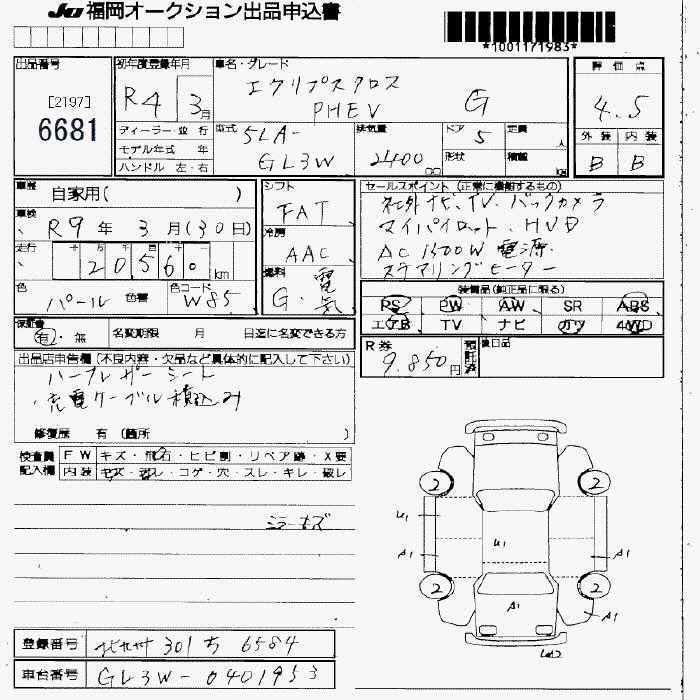 JU 福岡オークション出品申込書
*1001171983*
出品番号
[2197]
6681
初年度登録年月
R4 3月
車名・グレード
エクリプスクロス
PHEV G
評価点
4.5
外装 内装
B B
ディーラー・並行
モデル年式 年
ハンドル 左・右
型式 5LA-
GL3W
排気量
2400 cc
ドア 5
形状
定員 人
積載 kg
車歴 自家用( )
車検 R9年 3月(30日)
走行 20560 km
色 パール 色替
色コード W85
シフト FAT
冷房 AAC
燃料 G・電気
セールスポイント(正常に機能するもの)
社外ナビ、TV、バックカメラ
マイパイロット、HUD
AC1500W電源
ステアリングヒーター
装備品(純正品に限る)
PS PW AW SR ABS
エアB TV ナビ カワ 4WD
保証書 有・無
名変期限 月 日迄に名変できる方
R券 9,850円 預託済
後日品
出品店申告欄(不良内容・欠品など具体的に記入して下さい)
ハーフレザーシート
充電ケーブル積込み
修復歴 有(箇所 )
検査員記入欄
FW キズ・飛石・ヒビ割・リペア跡・X要
内装 キズ・汚レ・コゲ・穴・スレ・キレ・破レ
ミラーキズ
2 2
U1
U1
A1 A1
2 2
A1 A1
登録番号 北九州 301 ち 6584
車台番号 GL3W-0401953